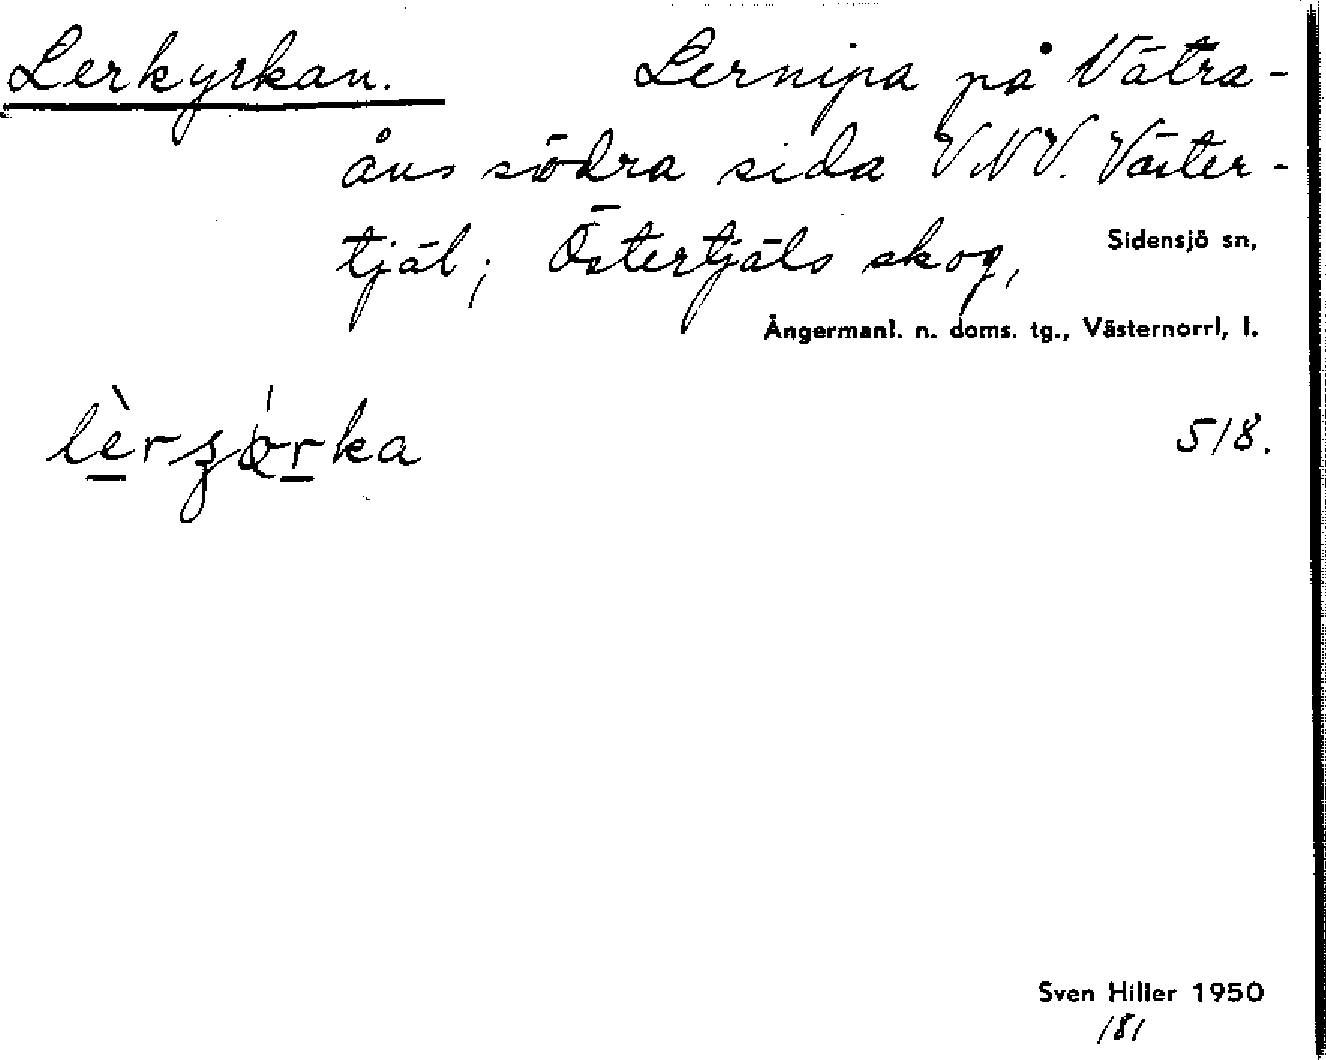 Lerkyrkan. Lernipa på Vätra-
åns södra sida VNV. Väster-
tjäl; Östertjäls skog, Sidensjö sn,
Ångermanl. n. doms. tg., Västernorrl, l.
518.
Sven Hiller 1950
181